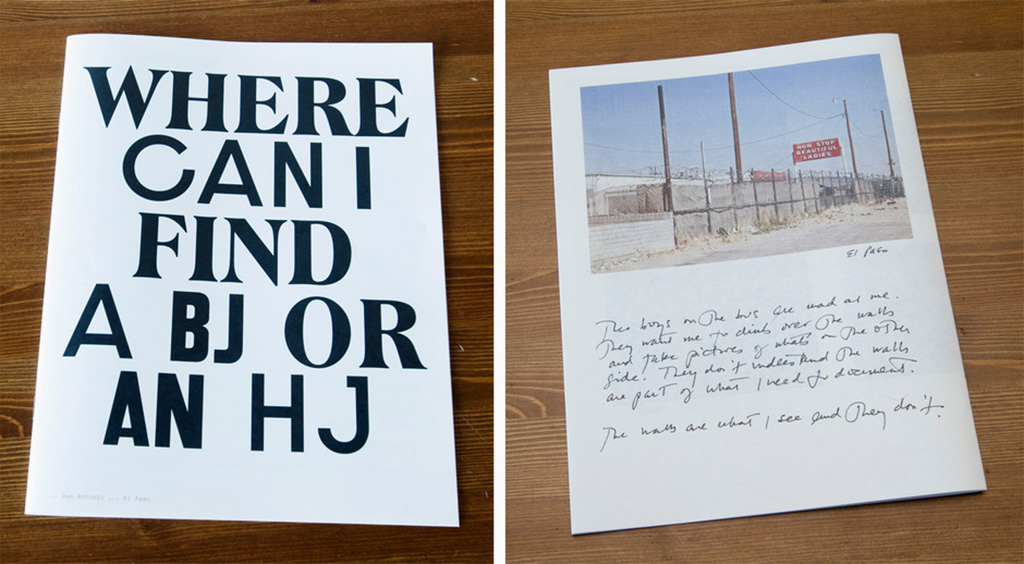 WHERE
CAN I
FIND
A BJ OR
AN HJ
... San Antonio ... El Paso
NON STOP
BEAUTIFUL
LADIES
El Paso
The boys on the bus are mad at me.
They want me to climb over the walls
and take pictures of whats on the other
side. They don't understand the walls
are part of what I need to document.
The walls are what I see and they don't.